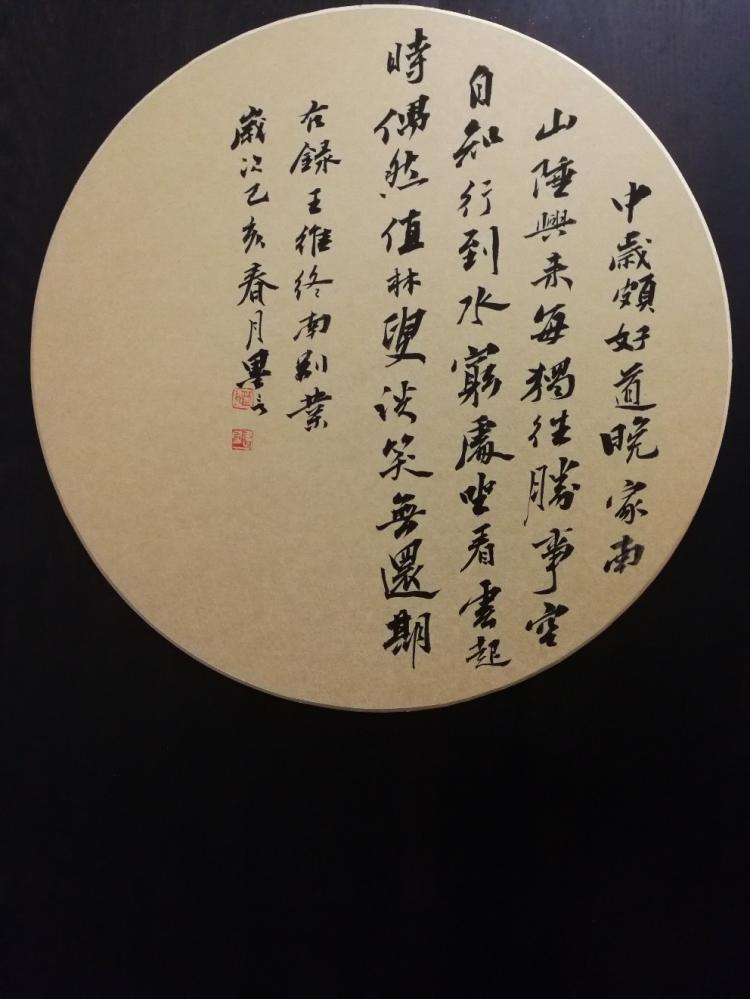 中歲頗好道晚家南
山陲興来每獨往勝事空
自知行到水窮處坐看雲起
時偶然值林叟談笑無還期
右録王維終南别業
歲次己亥春月墨言